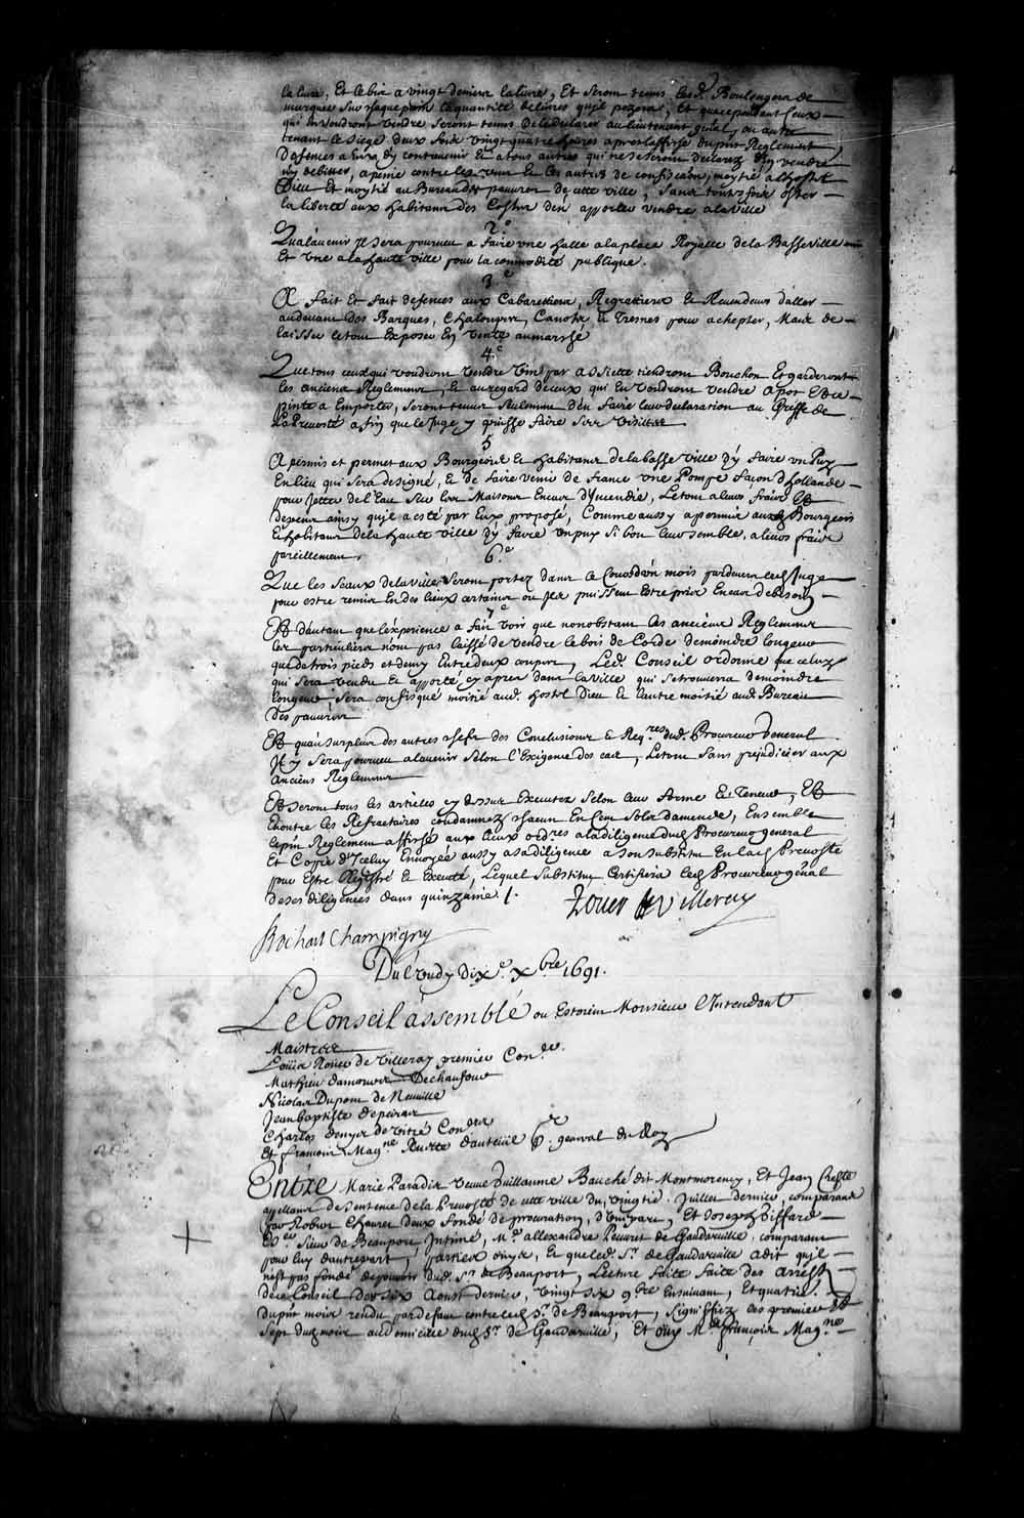 la livre, Et le bis a vingt deniers la livre, Et seront tenus lesd. Boulangers de
marquer sur chaque pain la quantité de livres qu'il pezera, Et que cependant ceux
qui en voudront vendre seront tenus de le declarer au lieutenant gñal, ou autre
tenant le siege deux fois vingt quatre heures apres l'affiche du pnt Reglement,
Defences a Eux d'y contrevenir Et a tous autres qui ne se seront declarez d'en vendre
ny debitter, a peine contre les uns Et les autres de confiscaõn, moytié a l'hostel
Dieu Et moytié au Bureau des pauvres de cette ville, sans toutesfois oster
la liberté aux habitans des Costes d'en apporter vendre a la ville
2e
Qu'a l'avenir Il sera pourveu a faire une halle a la place Royalle de la Basse ville
Et une a la haute ville pour la commodité publique.
3e
A fait Et fait defences aux Cabarettiers, Regrattiers Et Revendeurs d'aller
au devant des Barques, Chalouppes, Canots Et Tresnes pour achepter, Mais de
laisser le tout Exposer En Vente au marché
4e
Que tous ceux qui voudront vendre Vin par assiette tiendront Bouchon Et garderont
les anciens Reglemens, Et au regard de ceux qui En voudront vendre a pot Et a
pinte a Emporter, seront tenus seulement d'en faire leur declaration au Greffe de
la Prevosté afin que le Juge y puisse faire ses visittes
5
A permis et permet aux Bourgeois Et habitans de la basse ville d'y faire un Puy
En lieu qui sera designé, Et de faire venir de france une Pompe façon d'hollande
pour jetter de l'Eau sur les Maisons En cas d'Incendie, Le tout a leurs fraiz Et
despens ainsy qu'il a esté par Eux proposé, Comme aussy a permis aux Bourgeois
Et habitans de la haute ville d'y faire un puy si bon leur semble, a leurs fraix
pareillement.
6e
Que les seaux de la ville seront portez dans le Cour d'un mois pardevant led. Juge
pour estre remis En des lieux certains ou Ils puissent Estre pris En cas de besoin
7e
Et d'autant que l'experience a fait voir que nonobstant les anciens Reglemens
les particuliers n'ont pas laissé de vendre le bois de Corde de moindre longeur
que de trois pieds et demy Entre deux coupes, Led. Conseil ordonne que celuy
qui sera vendu Et apporté cy apres dans la ville qui se trouvera de moindre
longeur, sera confisqué moitié aud. hostel Dieu Et l'autre moitié aud. Bureau
des pauvres
Et qu'au surplus des autres chefs des Conclusions Et Reqres dud. Procureur General
Il y sera pourveu a l'avenir selon l'Exigence des cas, Le tout sans prejudicier aux
anciens Reglemens
Et seront tous les articles cy dessus Executez selon leur forme Et Teneur, Et
Encontre les Refractaires condamnez chacun En Cent solz d'amende, Ensemble
le pnt Reglement affiché aux lieux ordres a la diligence dud. Procureur general
Et Coppie d'Iceluy Envoyée aussy a sa diligence a son substitut En lad. Prevosté
pour Estre Registré Et Executé, Lequel substitut Certifiera led. Procureur gñal
de ses diligences dans quinzaine /.
Roüer de Villeray
Bochart Champigny
Du Lundy dixe. Xbre 1691.
Le Conseil assemblé ou Estoient Monsieur l'Intendant
Maistres
Loüis Roüer de Villeray premier Coner.
Mathieu damours Deschaufour
Nicolas Dupont de Neuville
Jean baptiste depeiras
Charles denys de vitré Coners
Et francois Magne Ruette d'auteüil Pr. general du Roy
Entre Marie Paradis veuve Guillaume Bauché dit Montmorency, Et Jean Creste
appellans de sentence de la Prevosté de cette ville du vingtie. Juillet dernier, comparans
par Robert Chauret d'eux fondé de procuration, d'Une part, Et Joseph Giffard
Er Sieur de Beauport Intimé, Me. allexandre Peuvret de Gaudarville, comparant
pour luy d'autre part; parties oüyes, Et que led. Sr. de Gaudarville a dit qu'il
n'est pas fondé de pouvoir dud. Sr de Beauport, Lecture faite faite des arrests
de ce Conseil des six Aoust dernier, vingt six 9bre Ensuivant, Et quatre
du pnt mois rendu par defaut contre led. Sr. de Beauport, signiffiez les premier Et
sept dud. mois au domicille dud. Sr. de Gaudarville, Et oüy Me. francois Magne